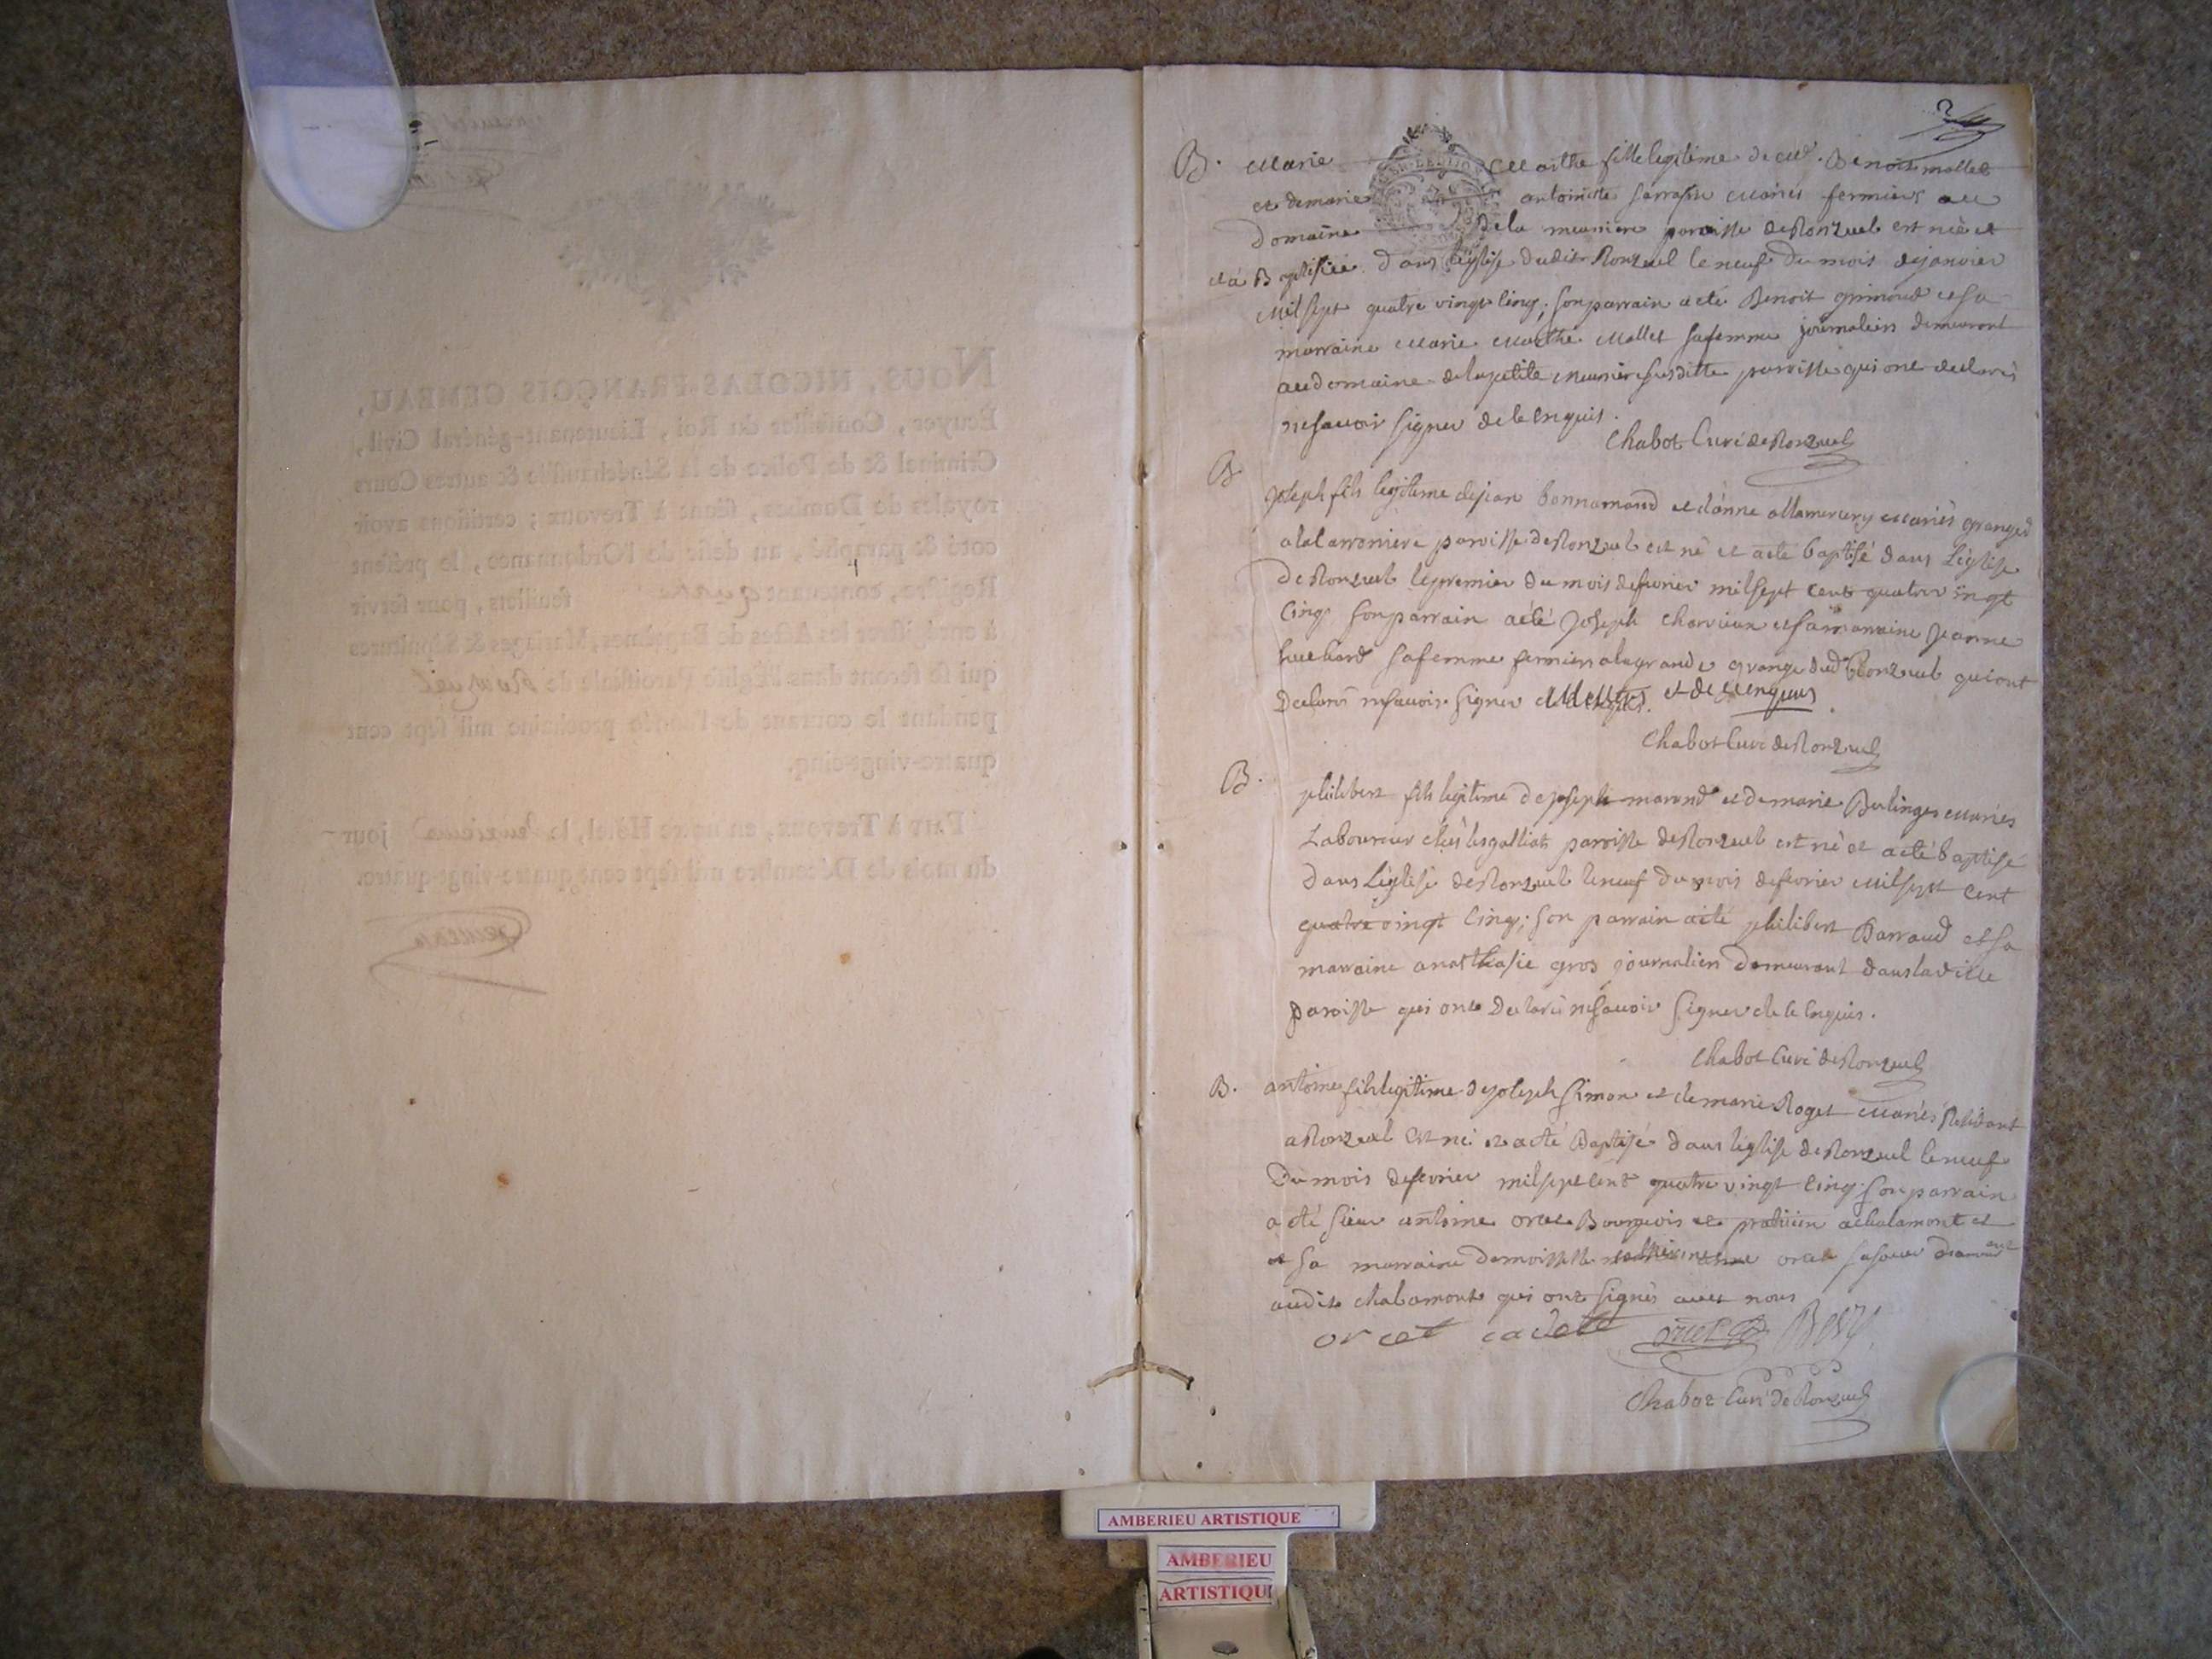 2
B. Marie Marthe fille legitime de me. Benoit mallet
et de marie antoinette mariés fermiers au
Domaine de la meuniere paroisse de Ronzuel est née et
eta Baptisée dans l'église dudit Ronzuel le neuf du mois de janvier
mil sept quatre vingt cinq, son parrain a eté Benoit grimoud et sa
marraine Marie Marthe Mallet sa femme journaliers demeurant
au domaine de la petite meuniere susditte paroisse qui ont declarés
ne savoir signer de ce enquis.
Chabot Curé de Ronzuel
B
Joseph fils legitime de jean bonnamand et d'anne allamercery mariés granged
a la larroniere paroisse de Ronzuel est né et a eté baptisé dans L'église
de Ronzuel le premier du mois de fevrier mil sept cent quatre vingt
Cinq son parrain a eté Joseph charvieux et sa marraine Jeanne
huchard sa femme fermiers a la grande grange dud. Ronzuel qui ont
Declarés ne savoir signer et de ce enquis
Chabot Curé de Ronzuel
B.
philibert fils legitime de joseph morand et de marie Berlinger mariés
Laboureur chés les galliats paroisse de Ronzuel est né et a eté baptisé
dans L'église de Ronzuel le neuf du mois de fevrier mil sept cent
quatre vingt cinq; son parrain a eté philibert Barraud et sa
marraine anasthasie gros journalier demeurant dans la ditte
paroisse qui ont declaré ne savoir signer de ce enquis.
Chabot Curé de Ronzuel
B. antoine fils legitime de joseph Simon et de marie Roget mariés Residant
a Ronzuel est né et a eté Baptisé dans l'église de Ronzuel le neuf
Du mois de fevrier mil sept cent quatre vingt cinq son parrain
a eté sieur antoine orcet Bourgeois et praticien a chalamont et
et sa marraine demoiselle orcet sa soeur demeurant
audit chalamont qui ont signés avec nous
orcet cadette orcet
Chabot Curé de Ronzuel
NOUS, NICOLAS-FRANÇOIS GEMEAU,
Ecuyer, Conseiller du Roi, Lieutenant-général Civil,
Criminel & de Police de la Sénéchaussée & autres Cours
royales de Dombes, séant à Trevoux ; certifions avoir
coté & paraphé, au desir de l'Ordonnance, le présent
Registre, contenant quatre feuillets, pour servir
à enrégistrer les Actes de Baptêmes, Mariages & Sépultures
qui se feront dans l'Eglise Paroissiale de Ronzuel
pendant le courant de l'année prochaine mil sept cent
quatre-vingt-cinq.
FAIT à Trevoux, en notre Hôtel, le deuxieme jour
du mois de Décembre mil sept cent quatre-vingt-quatre.
Gemeau
AMBERIEU ARTISTIQUE
AMBERIEU
ARTISTIQU